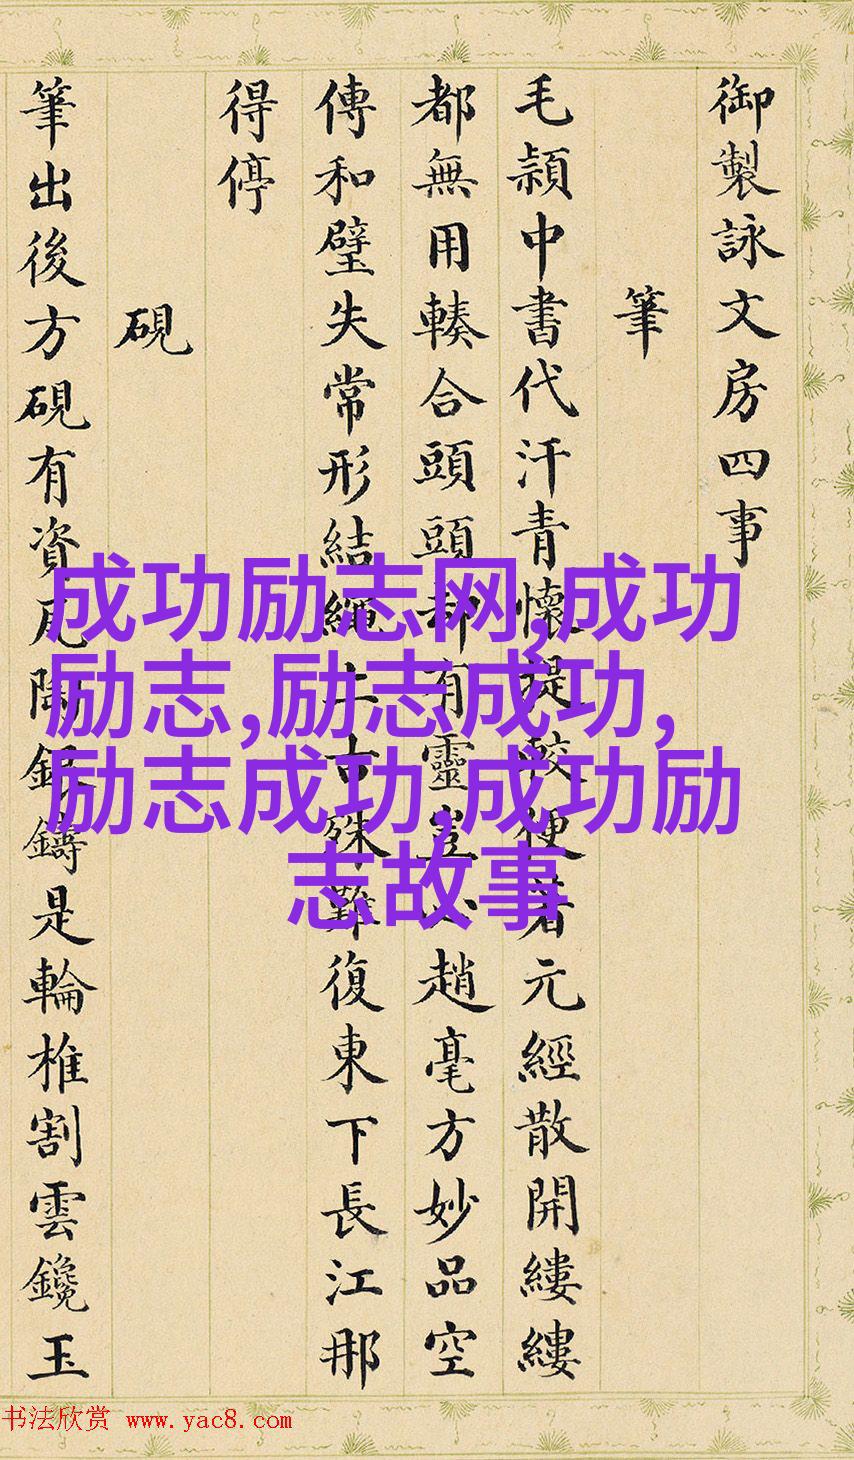 御製詠文房四事
筆
毛頴中書代汗青懷提較便著元經散開縷縷
都無用輳合頭頭却有靈豈必趙毫方妙品空
傳和璧失常形結繩上古殊難復東下長江那
得停
硯
筆出後方硯有資瓦陶銀鑄是輪椎割雲鑱玉
成功励志网,成功
励志,励志成功,
励志成功,成功励
志故事
书法欣赏 www.yac8.com